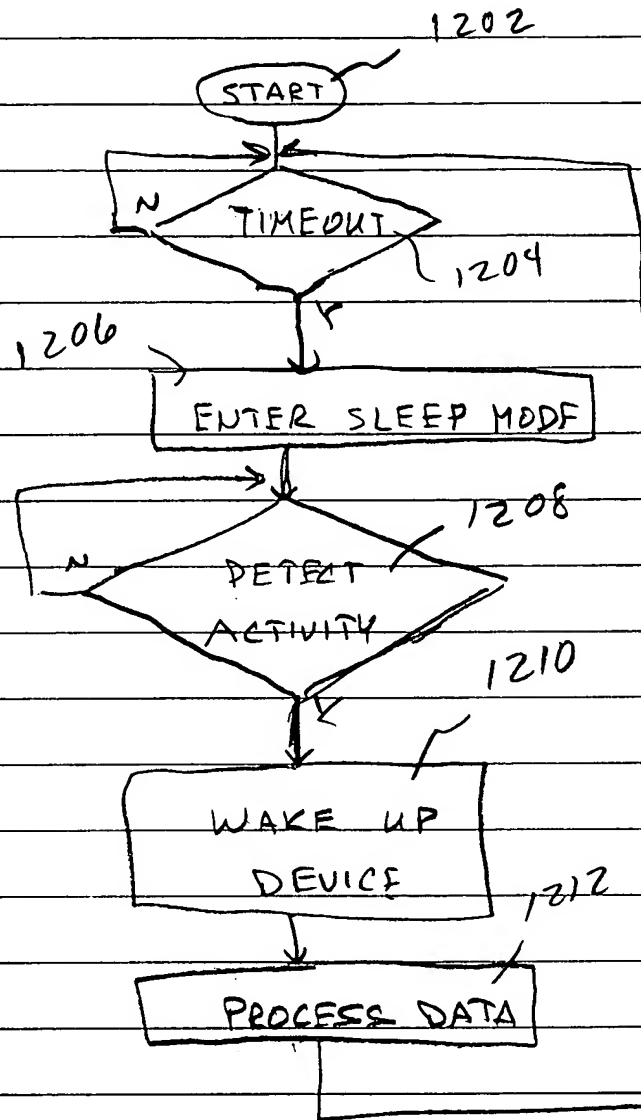 1202
START
N
TIMEOUT
1204
Y
1206
ENTER SLEEP MODE
1208
N
DETECT
ACTIVITY
Y
1210
WAKE UP
DEVICE
1212
PROCESS DATA